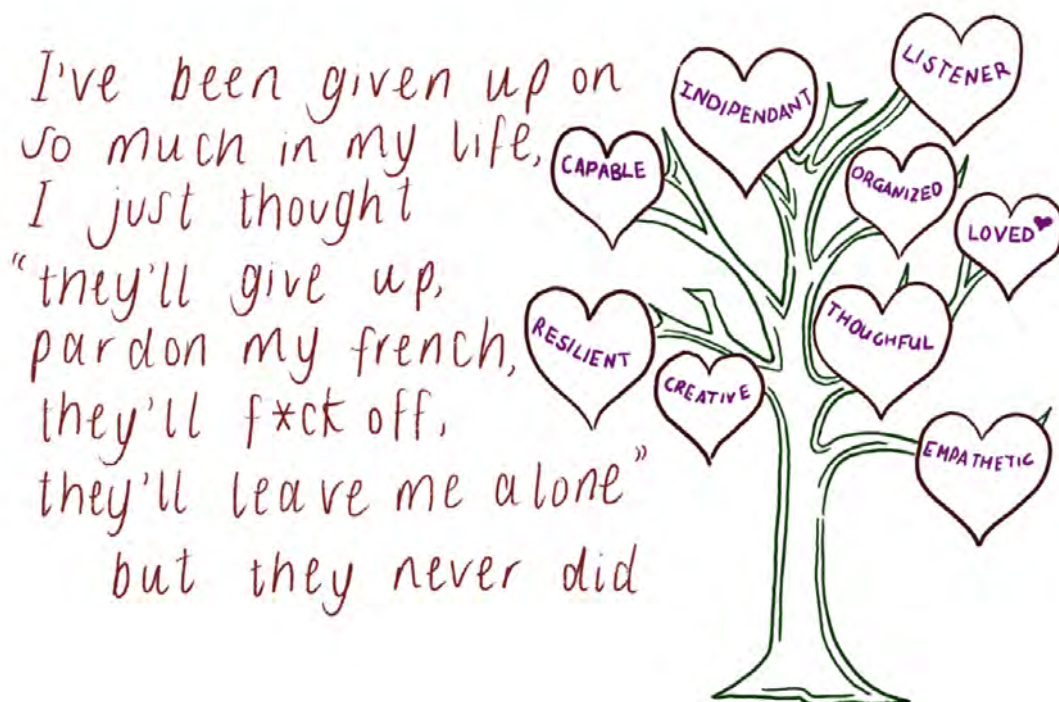 I've been given up on
so much in my life,
I just thought
"they'll give up,
pardon my french,
they'll f*ck off,
they'll leave me alone"
but they never did
LISTENER
INDIPENDANT
CAPABLE
ORGANIZED
LOVED
RESILIENT
THOUGHFUL
CREATIVE
EMPATHETIC